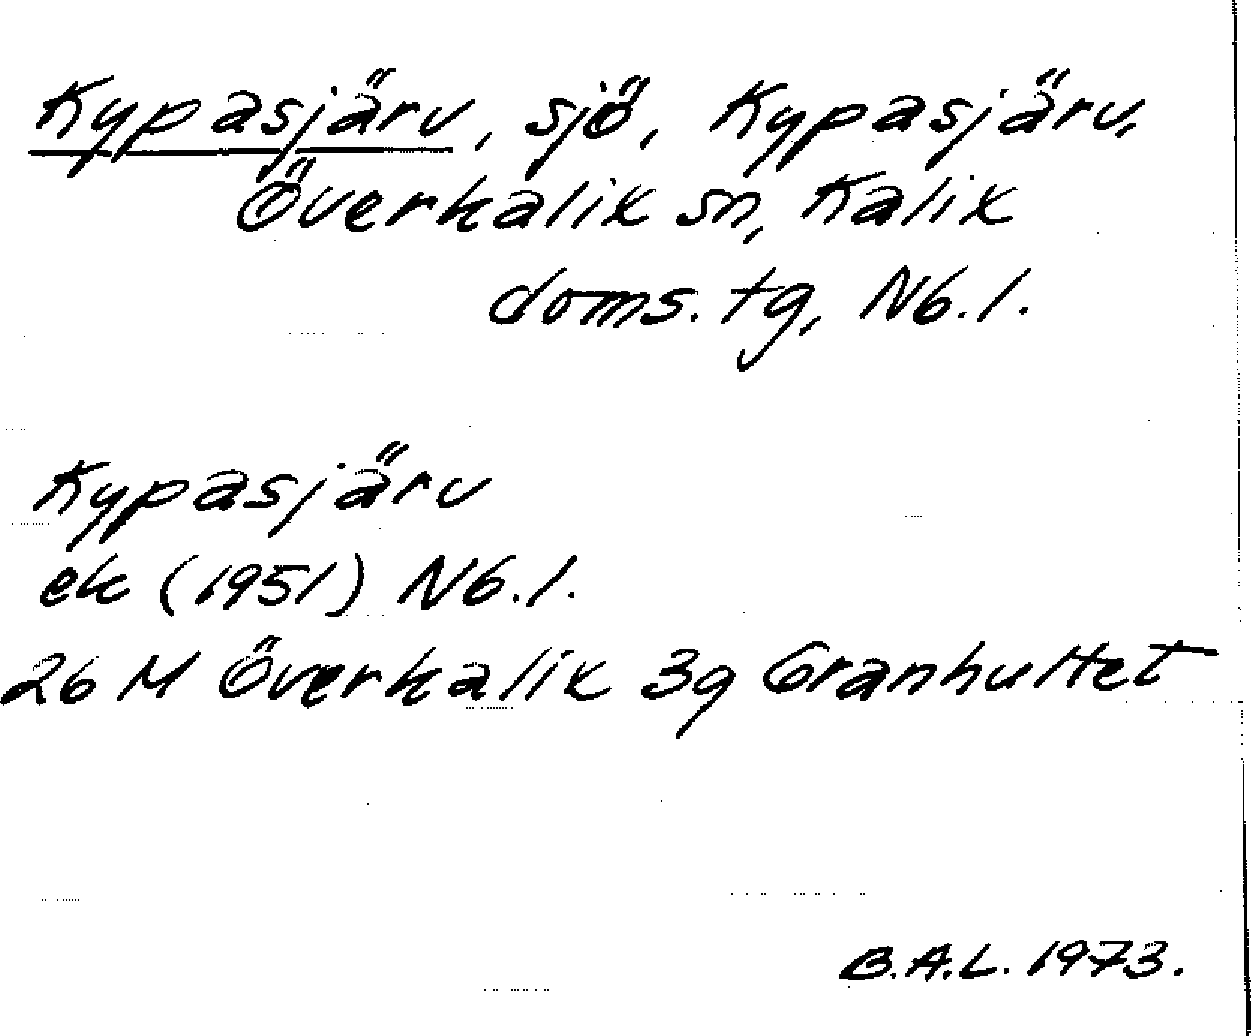 Kypasjärv, sjö, Kypasjärv,
Överkalix sn, Kalix
doms. tg, Nb. l.
Kypasjärv
ek (1951) Nb. l.
26 M Överkalix 3g Granhultet
B.A.L. 1973.